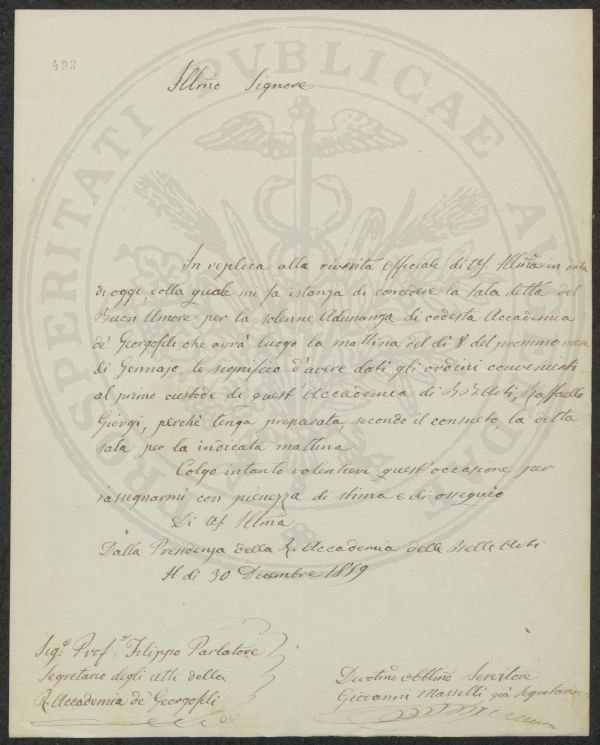 493
PROSPERITATI PVBLICAE AVGENDAE
Illmo Signore
In replica alla riverita Officiale di VS. Illma in data
di oggi, colla quale mi fa istanza di concedere la Sala detta del
Buon Umore per la solenne Adunanza di codesta Accademia
de' Georgofili che avrà luogo la mattina del dì 8 del prossimo mese
di Gennajo, le significo d'avere dati gli ordini convenienti
al primo custode di quest'Accademia di BB Arti, Raffaello
Giorgi, perchè tenga preparata, secondo il consueto la detta
sala, per la indicata mattina
Colgo intanto volentieri quest'occasione per
rassegnarmi con pienezza di stima e di ossequio
Di VS Illma
Dalla Presidenza della R. Accademia delle Belle Arti
Il dì 30 Dicembre 1859
Sigr. Prof. Filippo Parlatore
Segretario degli Atti della
R. Accademia de' Georgofili
Devotmo Obblmo Servitore
Giovanni Masselli già Segretario